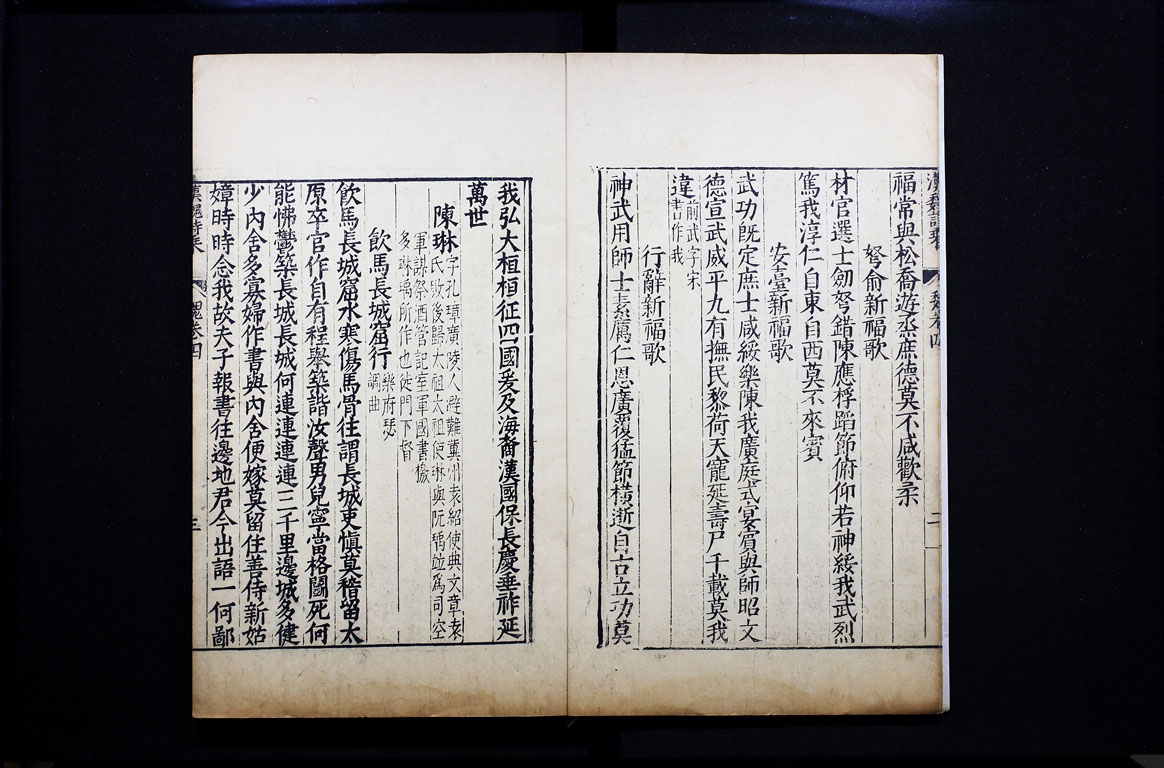 漢魏詩乘 魏卷四 二
福常與松喬遊烝庶德莫不咸歡柔
弩俞新福歌
材官選士劒弩錯陳應桴蹈節俯仰若神綏我武烈
篤我淳仁自東自西莫不來賓
安臺新福歌
武功旣定庶士咸綏樂陳我廣庭式宴賓與師昭文
德宣武威平九有撫民黎荷天寵延壽尸千載莫我
違前武字宋
書作我
行辭新福歌
神武用師士素厲仁恩廣覆猛節橫逝自古立功莫
我弘大桓桓征四國爰及海裔漢國保長慶垂祚延
萬世
陳琳字孔璋廣陵人避難冀州袁紹使典文章袁
氏敗後歸太祖太祖使琳與阮瑀竝爲司空
軍謀祭酒管記室軍國書檄
多琳瑀所作也徙門下督
飮馬長城窟行樂府瑟
調曲
飮馬長城窟水寒傷馬骨往謂長城吏愼莫稽留太
原卒官作自有程舉築諧汝聲男兒寧當格鬬死何
能怫鬱築長城長城何連連連連三千里邊城多健
少內舍多寡婦作書與內舍便嫁莫留住善侍新姑
嫜時時念我故夫子報書往邊地君今出語一何鄙
漢魏詩乘 魏卷四 三